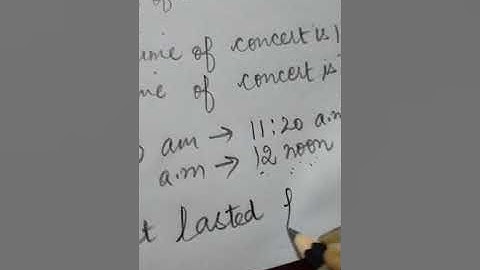 of
time of concert is
me of concert is
am → 11:20 a.m
a.m → 12 noon
lasted f